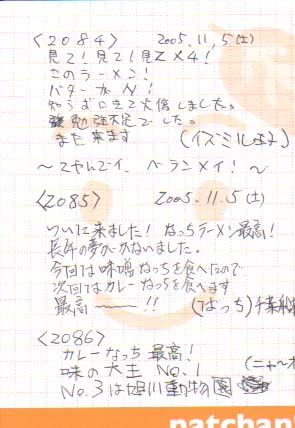 <2084> 2005.11.5(土)
見て!見て!見てメ4!
このラーメン!
バターがN!
知らずにきて大損しました。
勉強不足でした。
また来ます (イズミルより)
〜てやんでイ、ベランメイ!〜
<2085> 2005.11.5(土)
ついに来ました!なっちラーメン最高!
長年の夢がかないました。
今回は味噌なっちを食べたので
次回はカレーなっちを食べます
最高〜!! (ばっち)千葉
<2086>
カレーなっち最高!
味の大王 No.1 (ニャ〜オ
No.3は旭川動物園
patchan